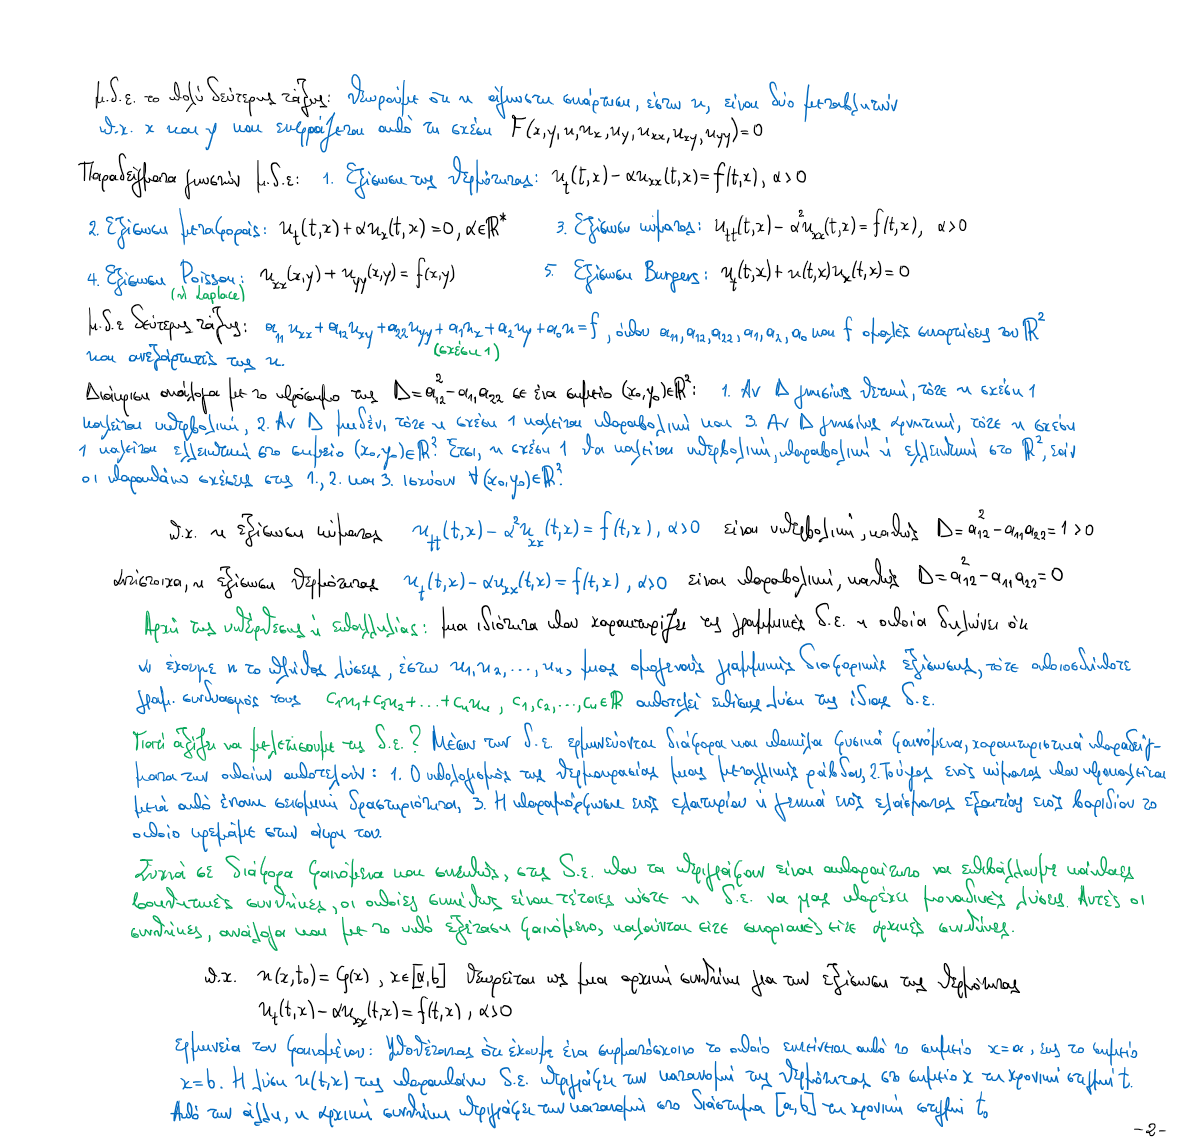 μ.δ.ε. το πολύ δεύτερης τάξης: Θεωρούμε ότι η άγνωστη συνάρτηση, έστω u, είναι δύο μεταβλητών
π.χ. x και y και εκφράζεται από τη σχέση F(x,y,u,u_x,u_y,u_xx,u_xy,u_yy)=0
Παραδείγματα γνωστών μ.δ.ε: 1. Εξίσωση της θερμότητας: u_t(t,x)-αu_xx(t,x)=f(t,x), α>0
2. Εξίσωση μεταφοράς: u_t(t,x)+αu_x(t,x)=0, α∈ℝ* 3. Εξίσωση κύματος: u_tt(t,x)-α²u_xx(t,x)=f(t,x), α>0
4. Εξίσωση Poisson: u_xx(x,y)+u_yy(x,y)=f(x,y) 5. Εξίσωση Burgers: u_t(t,x)+u(t,x)u_x(t,x)=0
(ή Laplace)
μ.δ.ε δεύτερης τάξης: a₁₁u_xx+a₁₂u_xy+a₂₂u_yy+a₁u_x+a₂u_y+a₀u=f, όπου a₁₁,a₁₂,a₂₂,a₁,a₂,a₀ και f ομαλές συναρτήσεις του ℝ²
(σχέση 1)
και ανεξάρτητες της u.
Διάκριση ανάλογα με το πρόσημο της Δ=a₁₂²-a₁₁a₂₂ σε ένα σημείο (x₀,y₀)∈ℝ²: 1. Αν Δ γνησίως θετική, τότε η σχέση 1
καλείται υπερβολική, 2. Αν Δ μηδέν, τότε η σχέση 1 καλείται παραβολική και 3. Αν Δ γνησίως αρνητική, τότε η σχέση
1 καλείται ελλειπτική στο σημείο (x₀,y₀)∈ℝ². Έτσι, η σχέση 1 θα καλείται υπερβολική, παραβολική ή ελλειπτική στο ℝ², εάν
οι παραπάνω σχέσεις στις 1., 2. και 3. ισχύουν ∀(x₀,y₀)∈ℝ².
π.χ. η εξίσωση κύματος u_tt(t,x)-α²u_xx(t,x)=f(t,x), α>0 είναι υπερβολική, καθώς Δ=a₁₂²-a₁₁a₂₂=1>0
Αντίστοιχα, η εξίσωση θερμότητας u_t(t,x)-αu_xx(t,x)=f(t,x), α>0 είναι παραβολική, καθώς Δ=a₁₂²-a₁₁a₂₂=0
Αρχή της υπέρθεσης ή επαλληλίας: μια ιδιότητα που χαρακτηρίζει τις γραμμικές δ.ε. η οποία δηλώνει ότι
αν έχουμε n το πλήθος λύσεις, έστω u₁,u₂,...,u_n, μιας ομογενούς γραμμικής διαφορικής εξίσωσης, τότε οποιοσδήποτε
γραμ. συνδυασμός τους c₁u₁+c₂u₂+...+c_nu_n, c₁,c₂,...,c_n∈ℝ αποτελεί επίσης λύση της ίδιας δ.ε.
Γιατί αξίζει να μελετήσουμε τις δ.ε.? Μέσω των δ.ε. ερμηνεύονται διάφορα και ποικίλα φυσικά φαινόμενα, χαρακτηριστικά παραδείγ-
ματα των οποίων αποτελούν: 1. Ο υπολογισμός της θερμοκρασίας μιας μεταλλικής ράβδου, 2. Το ύψος ενός κύματος που προκαλείται
μετά από έντονη σεισμική δραστηριότητα, 3. Η παραμόρφωση ενός ελατηρίου ή γενικά ενός ελάσματος εξαιτίας ενός βαριδίου το
οποίο κρεμάμε στην άκρη του.
Συχνά σε διάφορα φαινόμενα και συνεπώς, στις δ.ε. που τα περιγράφουν είναι απαραίτητο να επιβάλλουμε κάποιες
βοηθητικές συνθήκες, οι οποίες συνήθως είναι τέτοιες ώστε η δ.ε. να μας παρέχει μοναδικές λύσεις. Αυτές οι
συνθήκες, ανάλογα και με το υπό εξέταση φαινόμενο, καλούνται είτε συνοριακές είτε αρχικές συνθήκες.
π.χ. u(x,t₀)=φ(x), x∈[α,b] θεωρείται ως μια αρχική συνθήκη για την εξίσωση της θερμότητας
u_t(t,x)-αu_xx(t,x)=f(t,x), α>0
Ερμηνεία του φαινομένου: Υποθέτοντας ότι έχουμε ένα συρματόσχοινο το οποίο εκτείνεται από το σημείο x=α, έως το σημείο
x=b. Η λύση u(t,x) της παραπάνω δ.ε. περιγράφει την κατανομή της θερμότητας στο σημείο x τη χρονική στιγμή t.
Από την άλλη, η αρχική συνθήκη περιγράφει την κατανομή στο διάστημα [α,b] τη χρονική στιγμή t₀
-2-